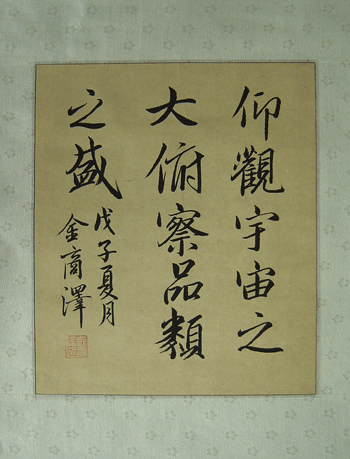 仰觀宇宙之
大俯察品類
之盛
戊子夏月
金商澤